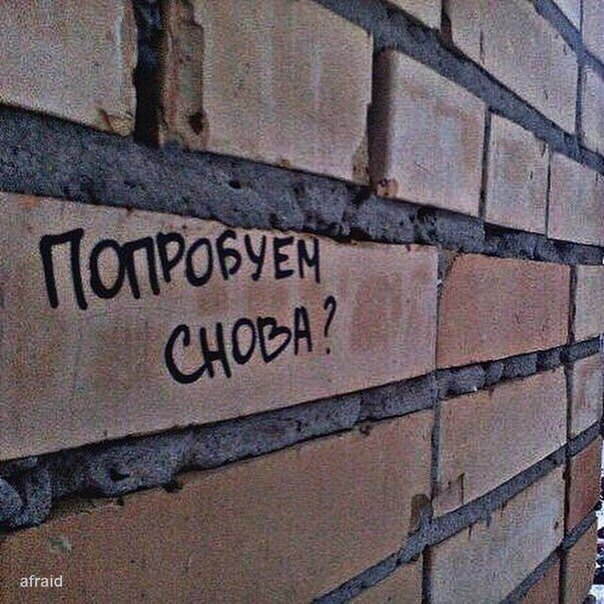 ПОПРОБУЕМ
СНОВА?
afraid